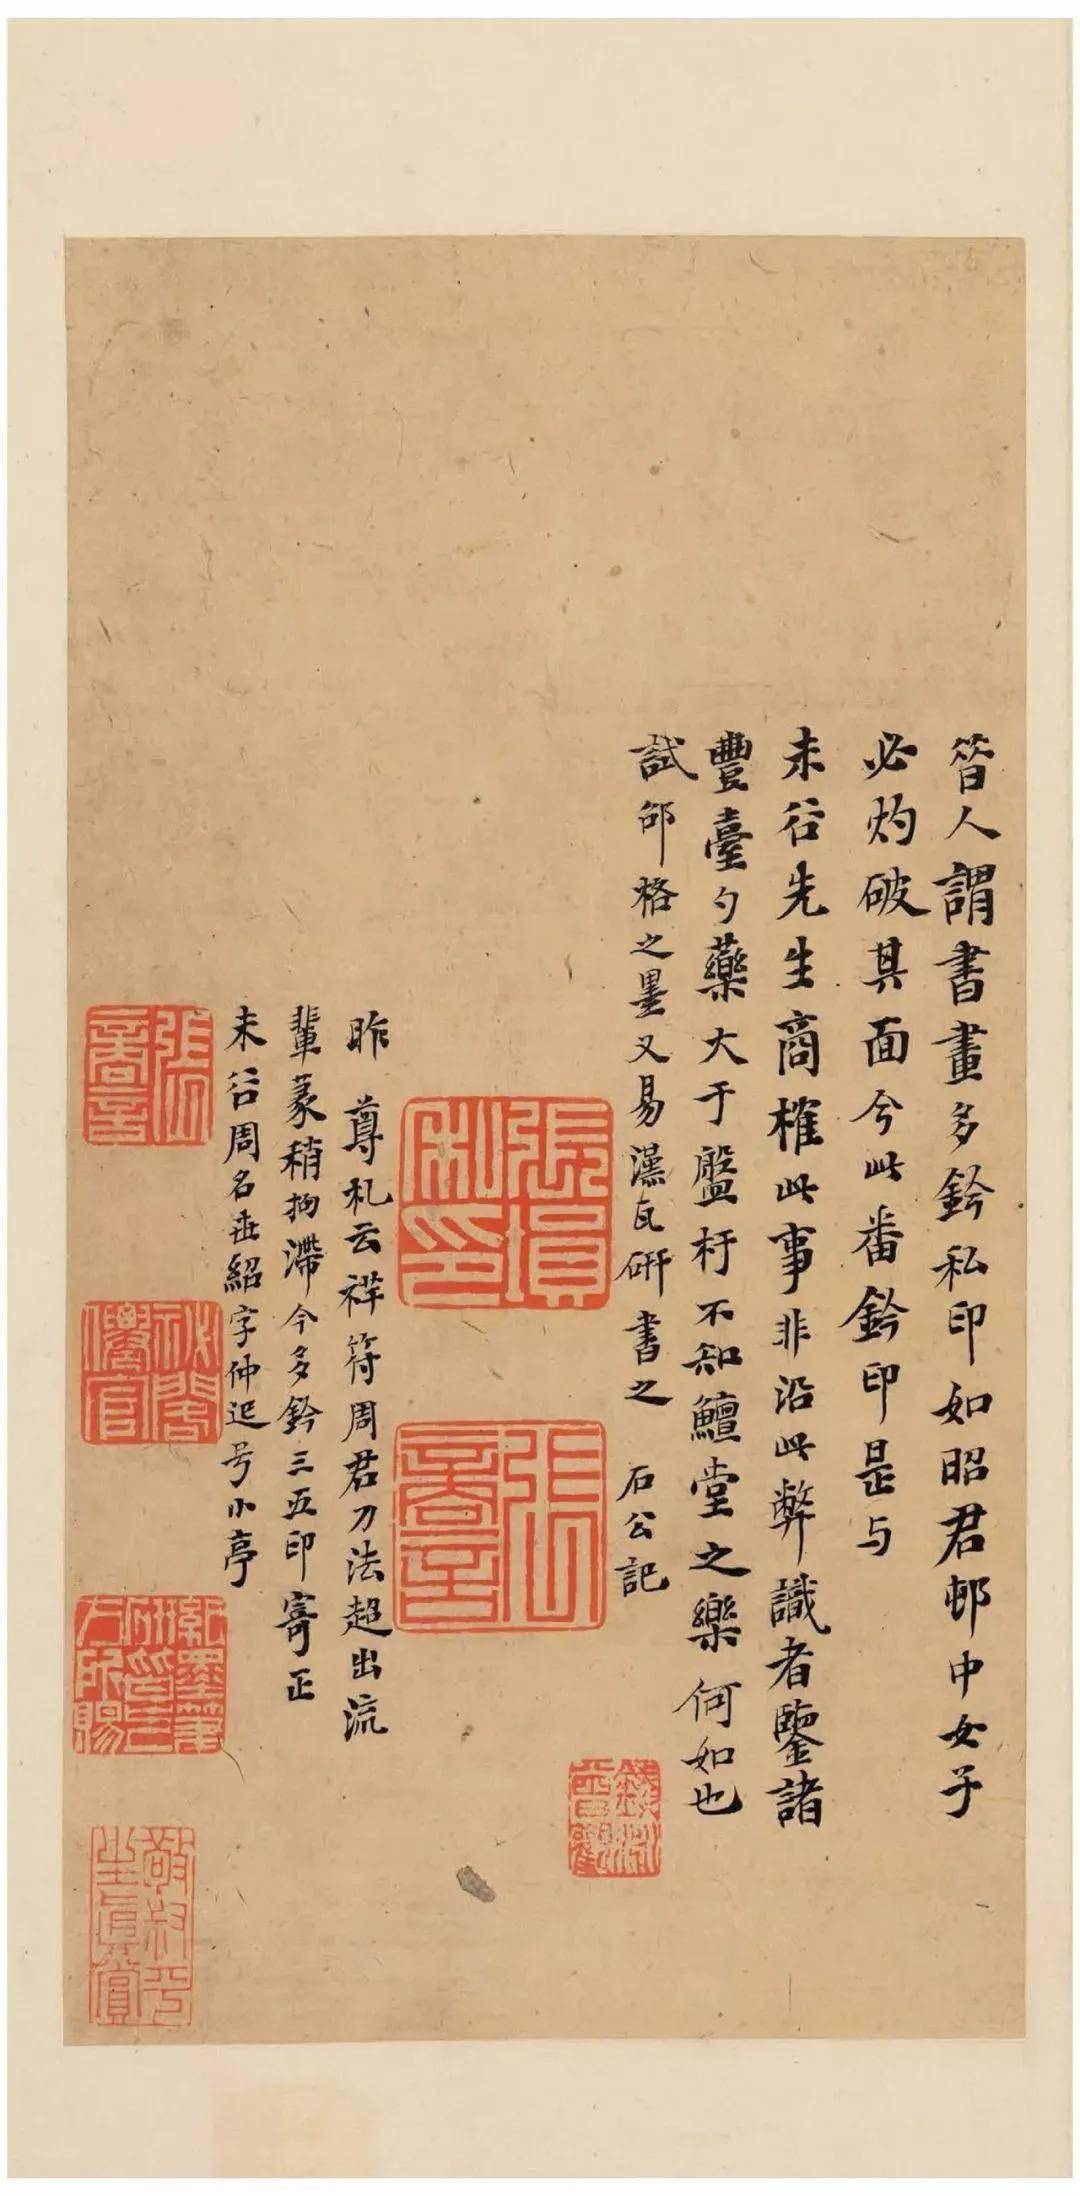 昝人謂書畫多鈐私印如昭君邨中女子
必灼破其面今此番鈐印是与
未谷先生商榷此事非沿此弊識者鑒諸
豐臺勺藥大于盤杅不知鱣堂之樂何如也
試邵格之墨又易漢瓦研書之 石公記
張塤私印
張塤
昨 尊札云祥符周君刀法超出流
輩篆稍拘滯今多鈐三五印寄正
未谷周名世紹字仲迟号小亭
張塤
敬叔平生真賞